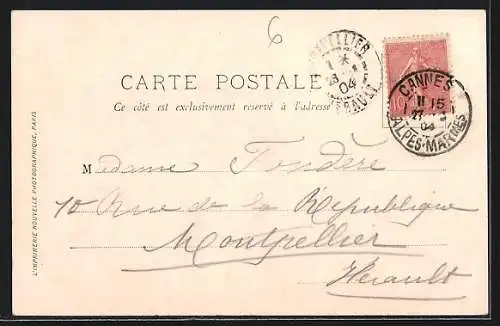 6
MONTPELLIER
1 *
23
04
HERAULT
CARTE POSTALE
Ce côté est exclusivement reservé à l'adresse
10
CANNES
15
27
04
ALPES-MARITIMES
Madame Fondère
10 Rue de la Republique
Montpellier
Herault
L'IMPRIMERIE NOUVELLE PHOTOGRAPHIQUE, PARIS